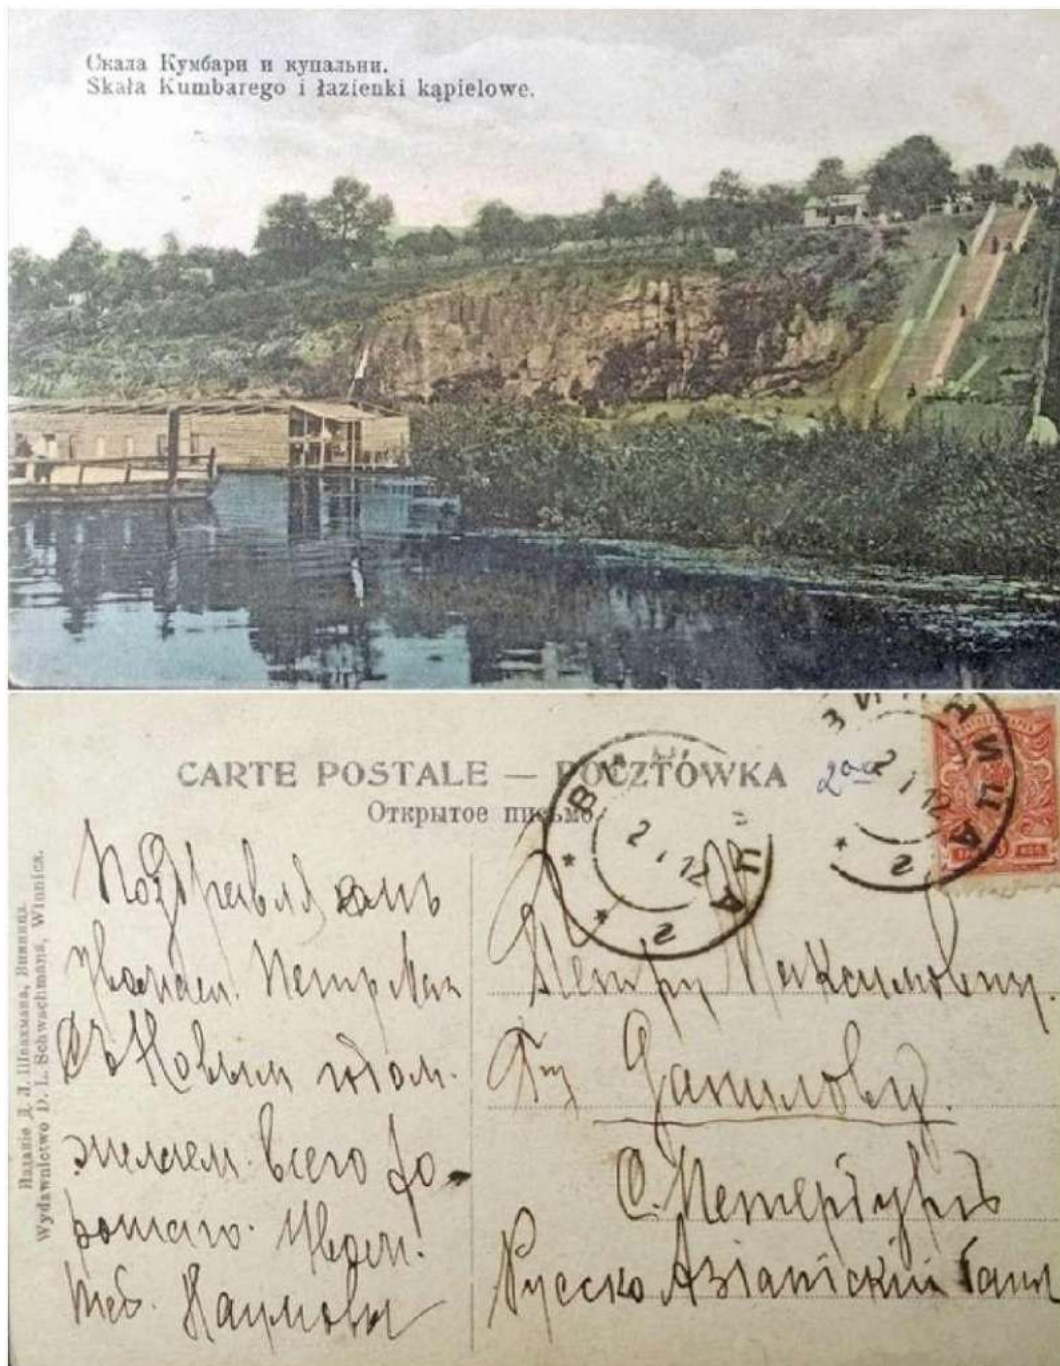 Скала Кумбари и купальни.
Skała Kumbarego i łazienki kąpielowe.
CARTE POSTALE — POCZTÓWKA
Открытое письмо
Изданіе Д. Л. Швахмана, Винница.
Wydawnictwo D. L. Schwachmana, Winnica.
Поздравляемъ
Петр Мак
Съ Новым годом.
желаем всего хо-
рошаго.
Наумовы
Петру Максимовичу.
Гну Данилову.
С. Петербургъ
Русско Азіатскій банк